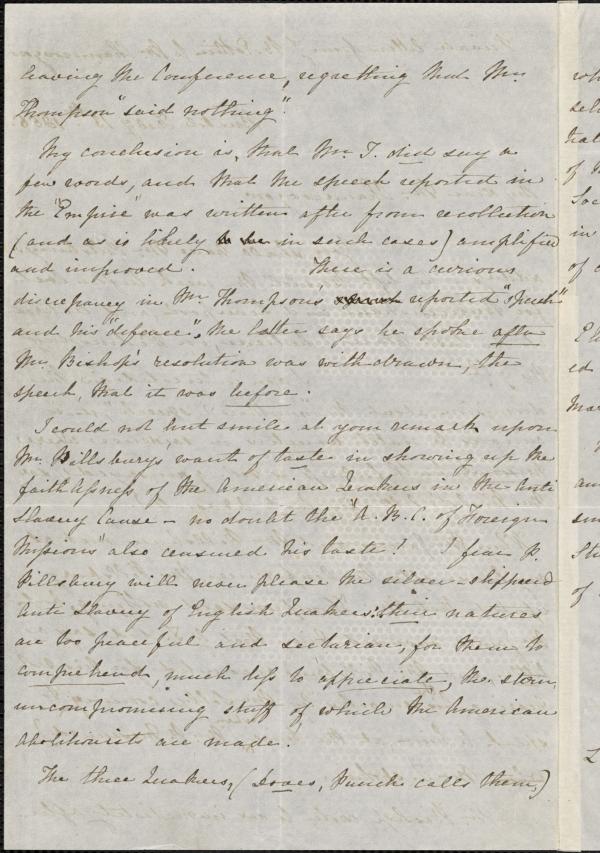 leaving the Conference, regretting that Mr.
Thompson "said nothing".
My conclusion is, that Mr. T. did say a
few words, and that the speech reported in
the "Empire" was written after from recollection
(and as is likely to be in such cases) amplified
and improved. There is a curious
discrepancy in Mr Thompson's reported "speech"
and his "defence", the latter says he spoke after
Mr. Bishop's resolution was withdrawn, the
speech, that it was before.
I could not but smile at your remark upon
Mr. Pillsbury's want of taste in showing up the
faithlessness of the American Quakers in the Anti
Slavery Cause – no doubt the "A. B. C. of Foreign
Missions" also censured his taste! I fear P.
Pillsbury will never please the silver-slippered
Anti Slavery of English Quakers: their natures
are too peaceful and sectarian, for them to
comprehend, much less to appreciate, the stern,
uncompromising stuff of which the American
Abolitionists are made.
The three Quakers, (Doves, Punch calls them,)